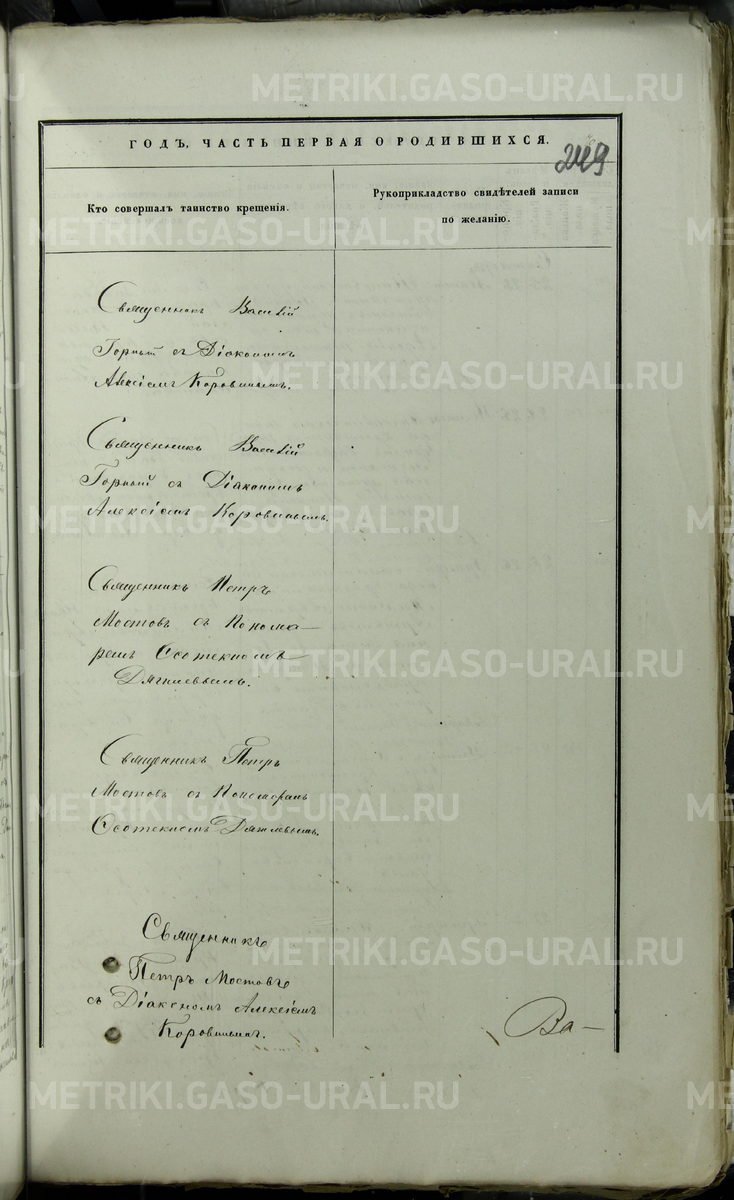 METRIKI.GASO-URAL.RU
ГОДЪ, ЧАСТЬ ПЕРВАЯ О РОДИВШИХСЯ.
249
Кто совершалъ таинство крещенія.
Рукоприкладство свидѣтелей записи
по желанію.
Священникъ Василій
Горный съ Діакономъ
Алексіемъ Коровинымъ.
Священникъ Василій
Горный съ Діакономъ
Алексіемъ Коровинымъ.
Священникъ Петръ
Мостовъ съ Понома-
ремъ
Священникъ Петръ
Мостовъ съ Пономаремъ
Священникъ
Петръ Мостовъ
съ Діакономъ Алексіемъ
Коровинымъ.
Ва-